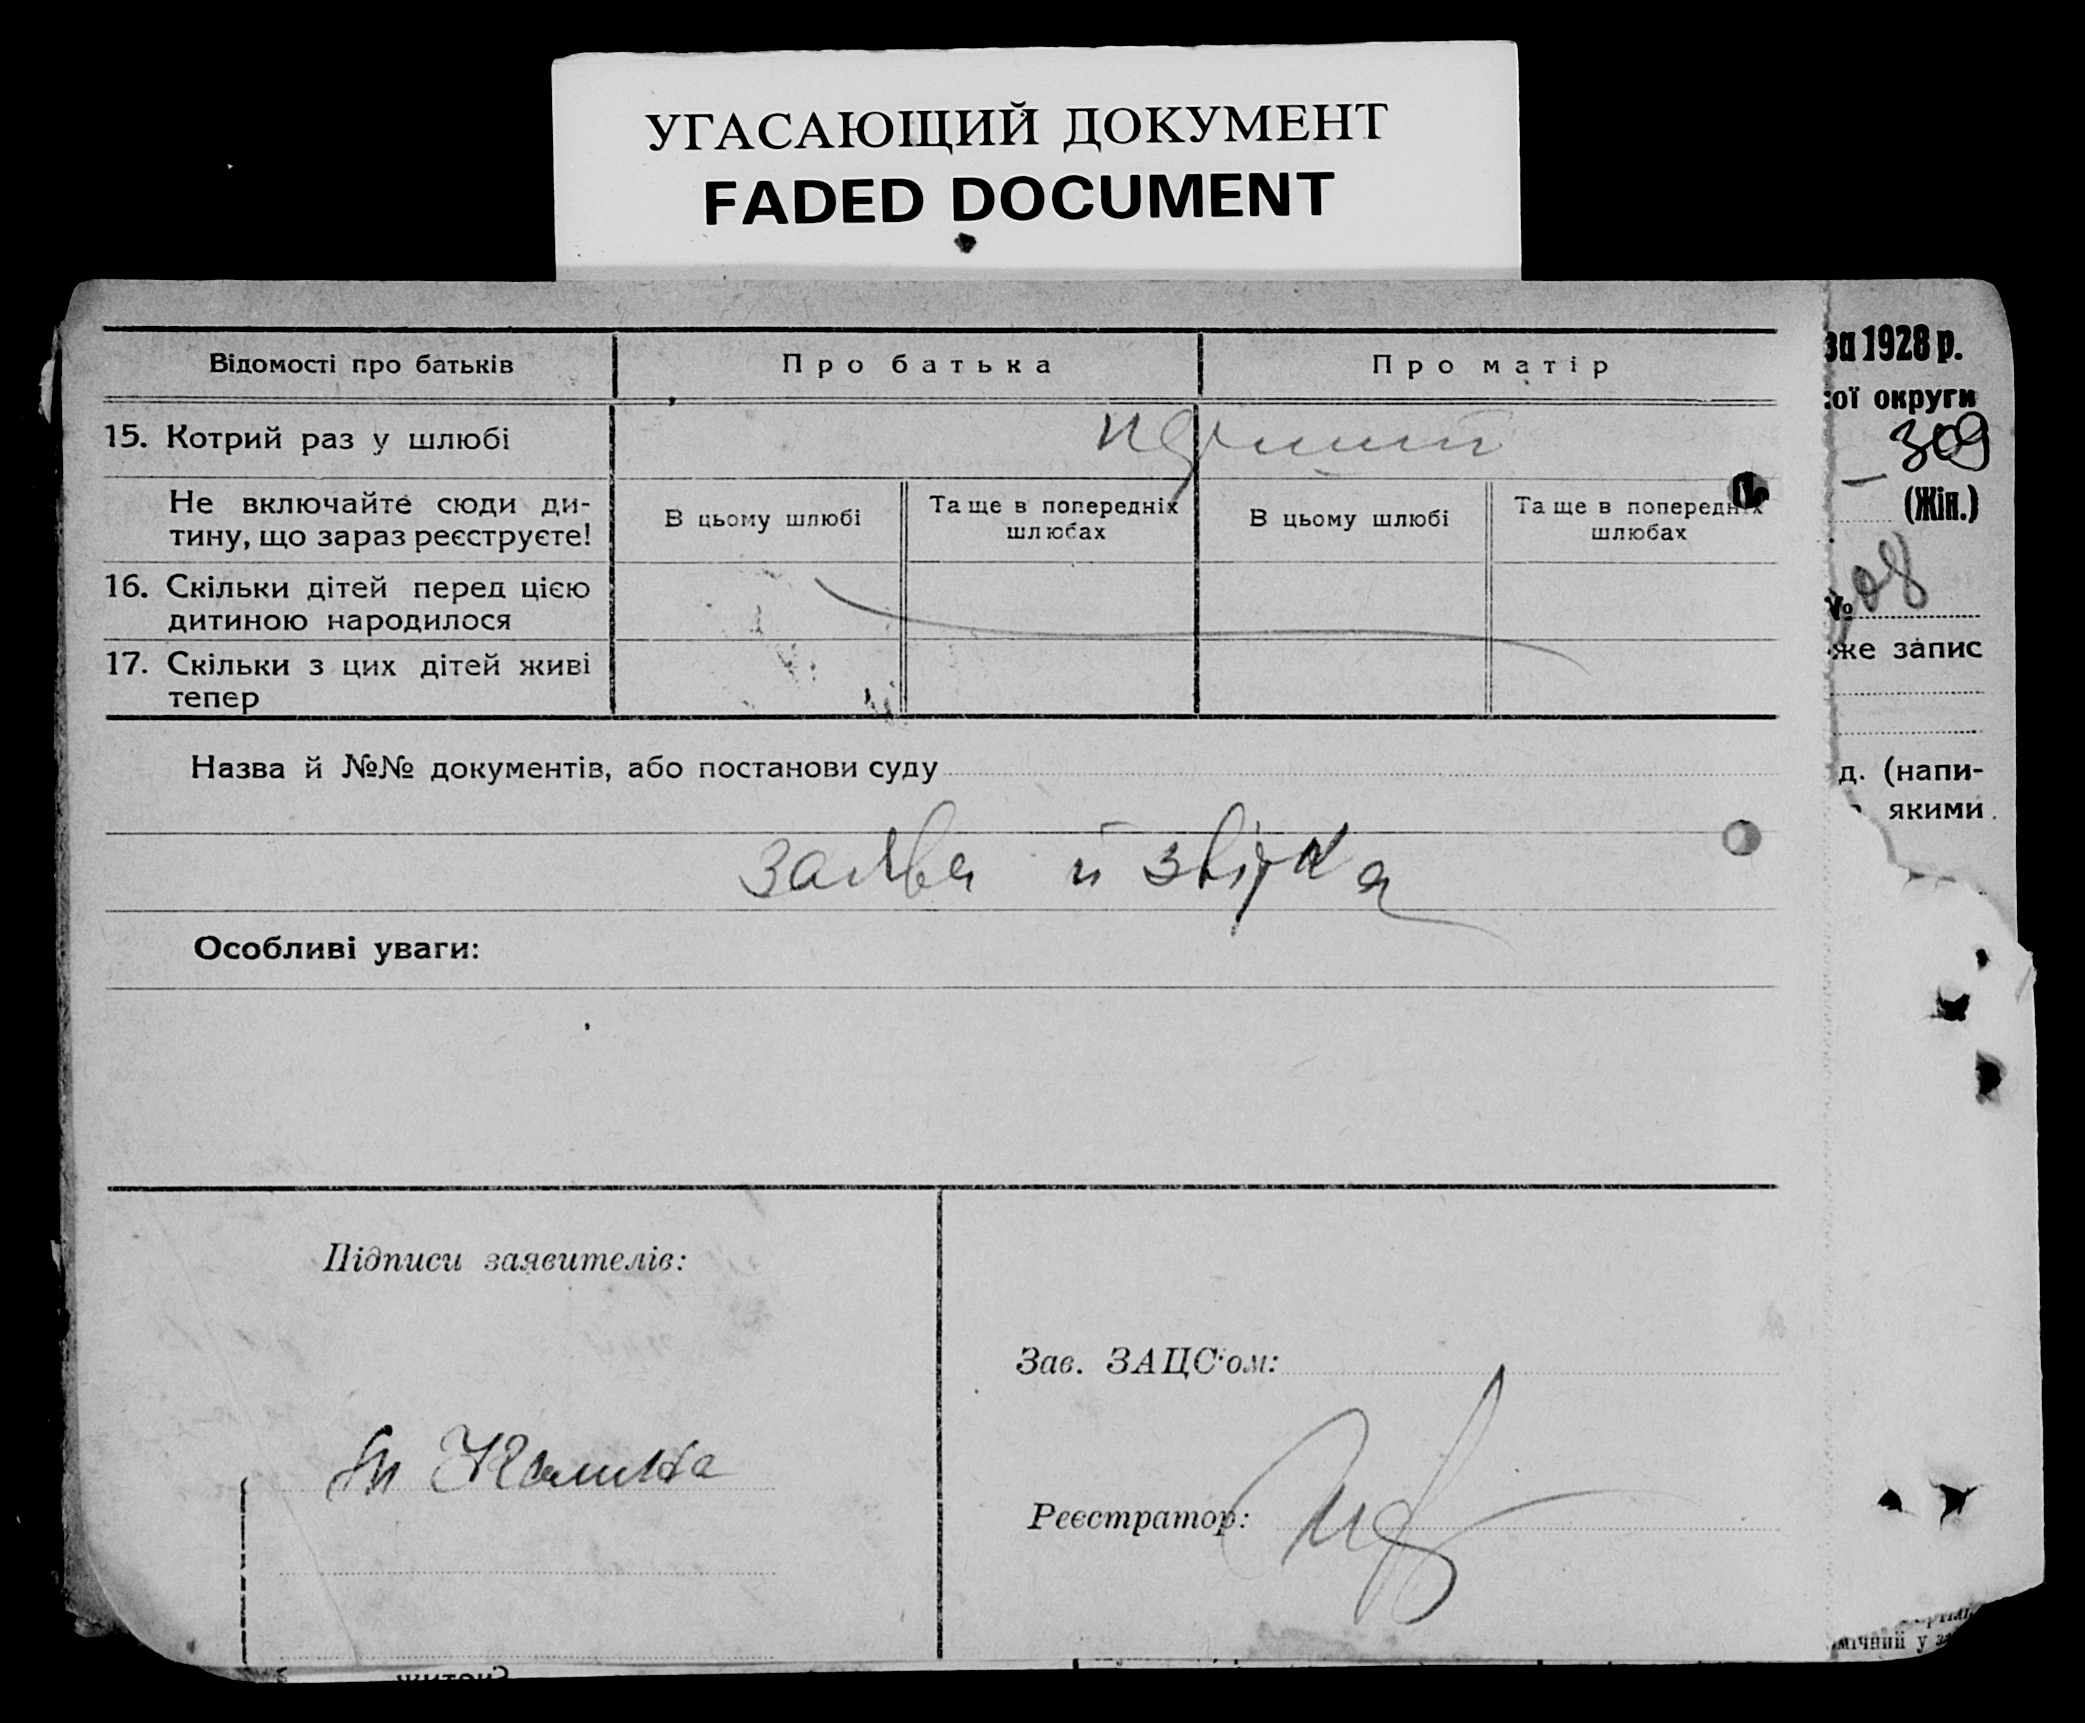 УГАСАЮЩИЙ ДОКУМЕНТ
FADED DOCUMENT
Відомості про батьків
Про батька
Про матір
15. Котрий раз у шлюбі
перший
Не включайте сюди ди-
тину, що зараз реєструєте!
В цьому шлюбі
Та ще в попередніх
шлюбах
В цьому шлюбі
Та ще в попередніх
шлюбах
16. Скільки дітей перед цією
дитиною народилося
17. Скільки з цих дітей живі
тепер
Назва й №№ документів, або постанови суду
заява й звідка
Особливі уваги:
Підписи заявителів:
Зав. ЗАЦС'ом:
Реєстратор:
за 1928 р.
ої округи
309
(Жін.)
№ 08
же запис
д. (напи-
якими
мічний у з